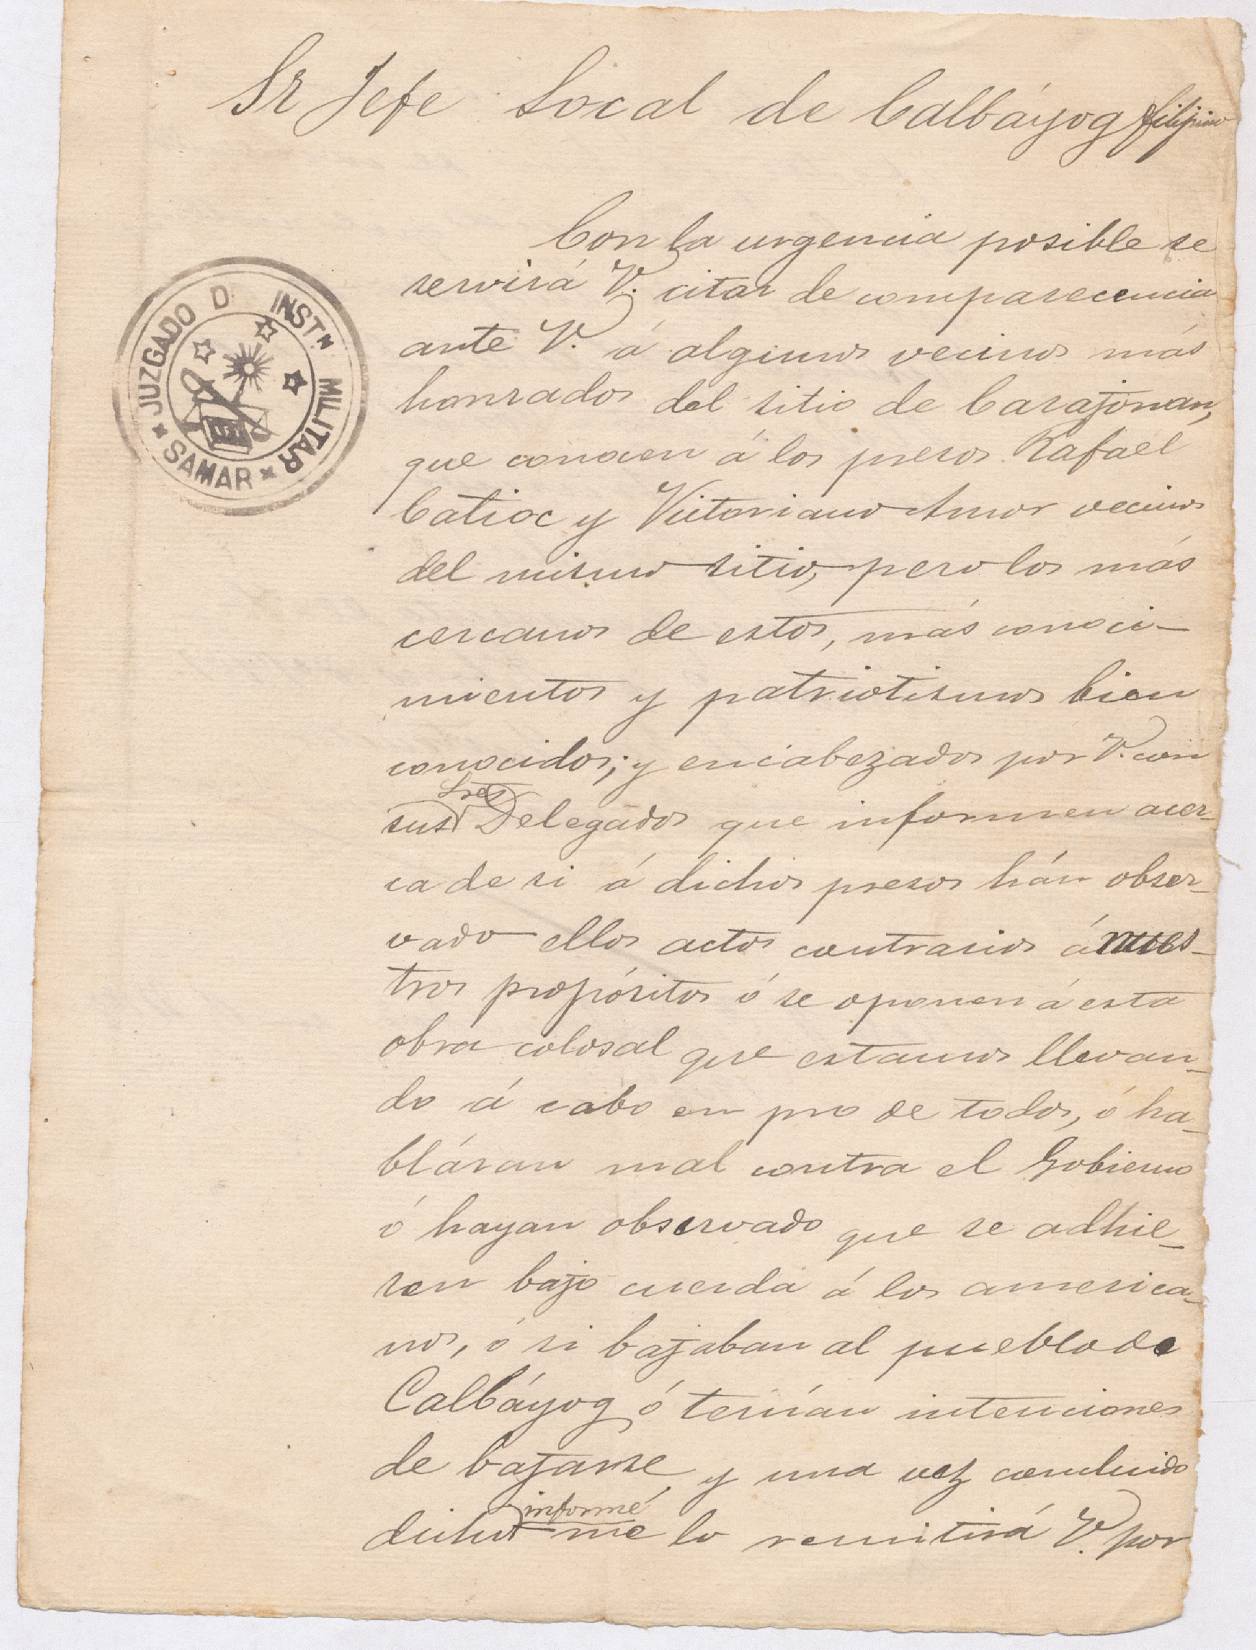 Sr Jefe Local de Calbáyog filipino
Con la urgencia posible se
servirá V. citar de comparecencia
ante V. á algunos vecinos más
honrados del sitio de Carajonan,
que conocen á los presos Rafael
Catioc y Victoriano Amor vecinos
del mismo sitio, pero los más
cercanos de estos, más conoci-
mientos y patriotismos bien
conocidos; y encabezados por V. con
sus tres Delegados que informen acer-
ca de si á dichos presos hán obser-
vado ellos actos contrarios á nues-
tros propósitos ó se oponen á esta
obra colosal que estamos llevan-
do á cabo en pro de todos, ó ha-
bláran mal contra el Gobierno
ó hayan observado que se adhie-
ren bajo cuerda á los america-
nos, ó si bajaban al pueblo de
Calbáyog ó tenían intenciones
de bajarse y una vez concluido
dicho informé me lo remitirá V. por
JUZGADO D INSTN MILITAR
SAMAR